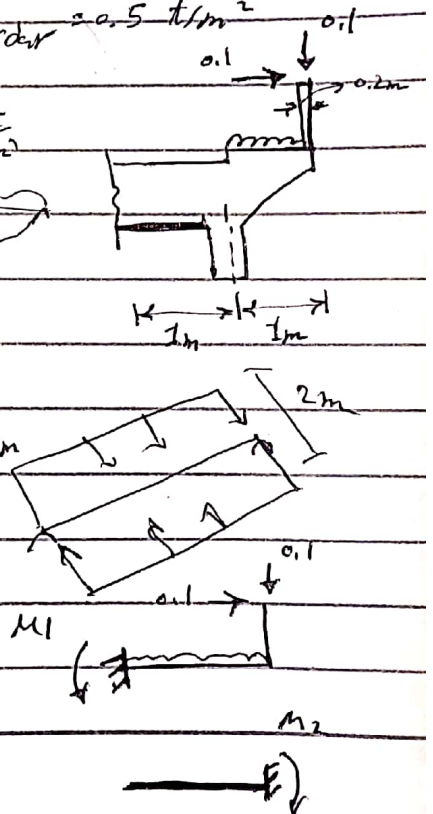 = 0.5 t/m²
0.1
0.1
0.2m
1m 1m
2m
m
0.1
0.1
M1
M2